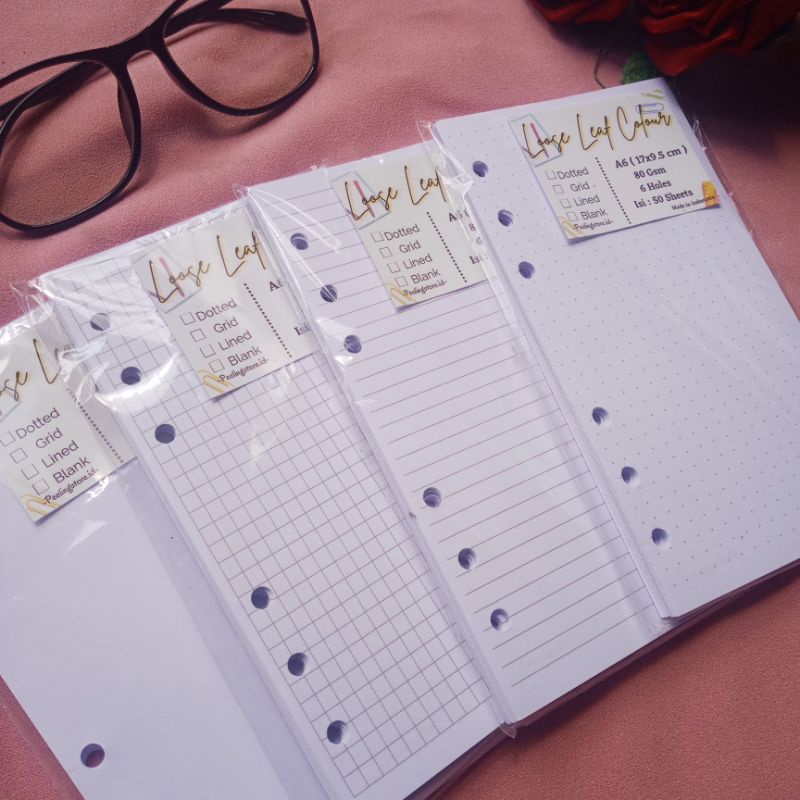 Loose Leaf Colour
Dotted
Grid
Lined
Blank
-Peelingstore.id-
A6 ( 17x9.5 cm )
80 Gsm
6 Holes
Isi : 50 Sheets
Made in Indonesia
Loose Leaf
Dotted
Grid
Lined
Blank
-Peelingstore.id-
A6
8
Loose Leaf
Dotted
Grid
Lined
Blank
-Peelingstore.id-
A6
Isi
Dotted
Grid
Lined
Blank
-Peelingstore.id-